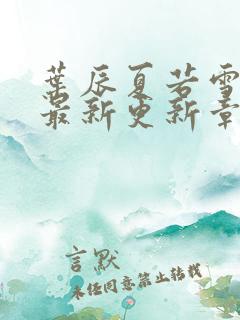 葉辰夏若雪
最新更新章
言默
未经同意禁止转载